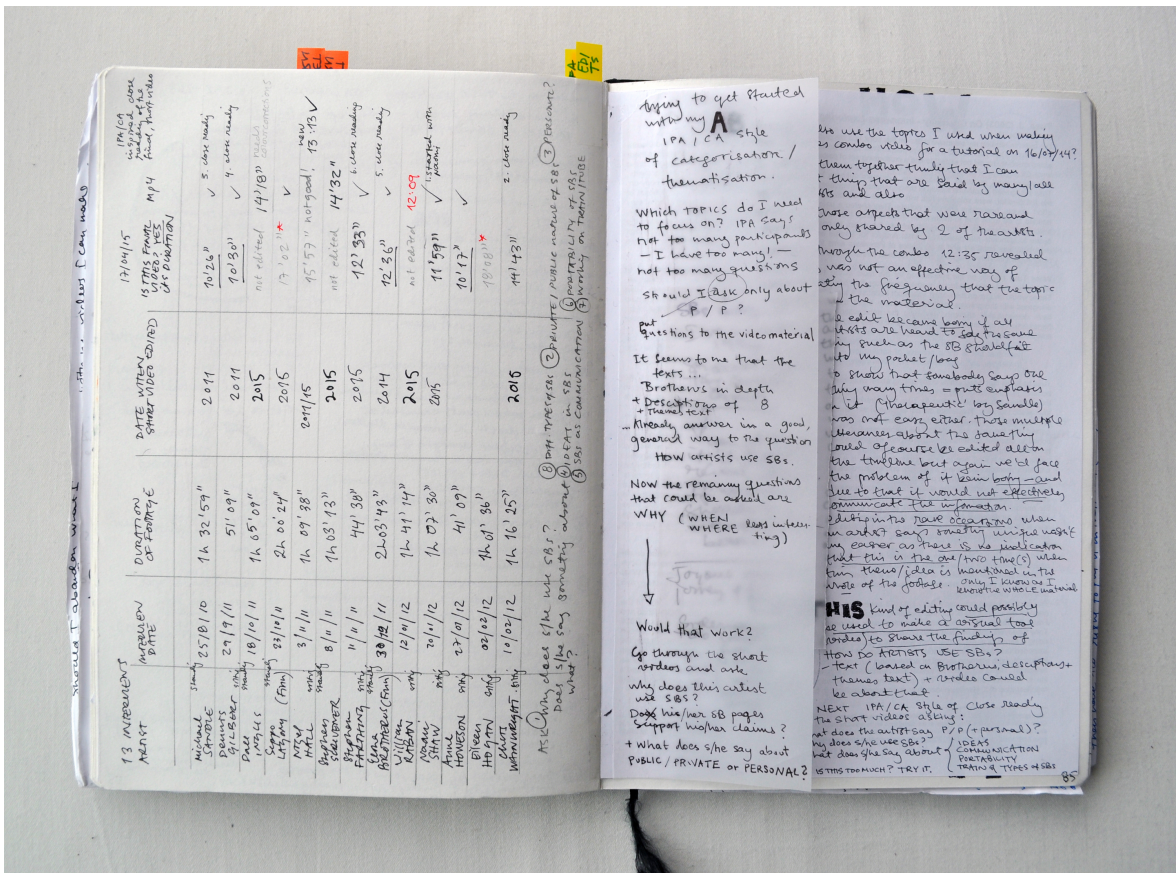 13 INTERVIEWS
ARTIST INTERVIEW DATE DURATION OF FOOTAGE DATE WHEN SHORT VIDEO EDITED 17/04/15 IS THIS FINAL VIDEO? YES its DURATION MP4 IPA/CA inspired close reading of the final, short video
Michael SANDLE standing 25/8/10 1h 32'59" 2011 10'26" ✓ 3. close reading
Dennis GILBERT 29/9/11 51'09" 2011 10'30" ✓ 4. close reading
INGLIS 18/10/11 1h 05'09" 2015 not edited 14'18"
(Finn) 23/10/11 2h 00'24" 2015 17'02"* ✓
Nigel HALL 3/11/11 1h 09'38" 2011/15 15'57" not good! new 13:13 ✓
Stephen 8/11/11 1h 03'43" 2015 not edited 14'32"
Stephen FARTHING 11/11/11 44'38" 2015 12'33" ✓ 6. close reading
BROTHERUS (Finn) 30/12/11 2h03'43" 2014 12'36" ✓ 5. close reading
William RABAN 12/01/12 1h 41'14" 2015 not edited 12:09
SHAW 20/01/12 1h 07'30" 2015 11'59" ✓ 1. started with
Anne HOWESON 27/01/12 41'09" 10'17" ✓
Eileen HOGAN 02/02/12 1h 01'36" 18'08"*
Chris WAINWRIGHT 10/02/12 1h 16'25" 2015 14'43" 2. close reading
ASK ① Why does s/he use SBs? ⑧ DIFF. TYPES of SBs ② PRIVATE / PUBLIC NATURE of SBs ③ PERSONAL?
Does s/he say something about ④ IDEAS in SBs ⑥ PORTABILITY of SBs
what? ⑤ SBs as COMMUNICATION ⑦ Working on TRAIN/TUBE
PA
EDI
TS
trying to get started
with my A
IPA / CA style
of categorisation /
thematisation.
Which TOPICS do I need
to focus on? IPA says
not too many participants
– I have too many! –
not too many questions
Should I ask only about
P / P ?
put
questions to the video material
It seems to me that the
texts...
Brotherus in depth
+ Descriptions of 8
+ Themes text
... Already answer in a good,
general way to the question
HOW artists use SBs.
Now the remaining questions
that could be asked are
WHY (WHEN
WHERE less interes-
ting)
Would that work?
Go through the short
videos and ask
why does this artist
use SBs?
Do his/her SB pages
support his/her claims?
+ What does s/he say about
PUBLIC / PRIVATE or PERSONAL?
also use the topics I used when making
combo video for a tutorial on 16/07/14?
them together thinly that I can
thing that are said by many/all
and also
those aspects that were rare and
only shared by 2 of the artists.
through the combo 12:35 revealed
was not an effective way of
the frequency that the topic
the material.
edit became boring if all
artists are heard to say the same
such as the SB should fit
into my pocket/bag
to show that somebody says one
thing many times = puts emphasis
on it ('therapeutic' by Sandle)
was not easy either. Those multiple
utterances about the same thing
could of course be edited all on
the timeline but again we'd face
the problem of it being boring – and
due to that it would not effectively
communicate the information.
Editing in the rare occasions when
an artist says something unique wasn't
any easier as there is no indication
that this is the one/two time(s) when
this theme/idea is mentioned in the
whole of the footage. only I know as I
know the WHOLE material
THIS kind of editing could possibly
be used to make a visual tool
(video) to share the findings of
HOW DO ARTISTS USE SBs?
– text (based on Brotherus, descriptions +
themes text) + video could
be about that.
NEXT IPA/CA style of close reading
the short videos asking:
what does the artist say P/P (+personal)?
why does s/he use SBs?
what does s/he say about { IDEAS
COMMUNICATION
PORTABILITY
TRAIN & TYPES of SBs
IS THIS TOO MUCH? TRY IT.
85